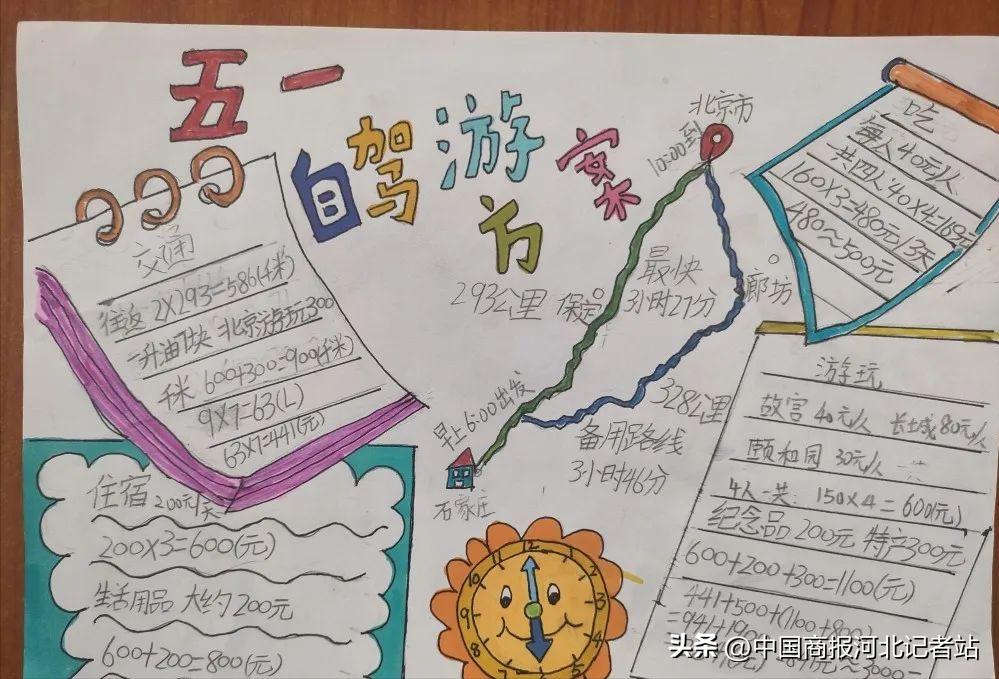 五一
自驾游
方案
交通
往返 2×293=586(千米)
一升油7块 北京游玩300
千米 600+300=900(千米)
9×7=63(L)
63×7=441(元)
住宿 200元/天
200×3=600(元)
生活用品 大约200元
600+200=800(元)
北京市
10:00到
293公里
保定
最快
3小时27分
廊坊
328公里
备用路线
3小时46分
早上6:00出发
石家庄
12
1
2
3
4
5
6
7
8
9
10
11
吃
每人40元/人
一共四人 40×4=160元
160×3=480元/3天
480~500元
游玩
故宫 40元/人 长城80元/人
颐和园 30元/人
4人一共: 150×4=600(元)
纪念品 200元 特产300元
600+200+300=1100(元)
441+500+(1100+800)
头条 @中国商报河北记者站